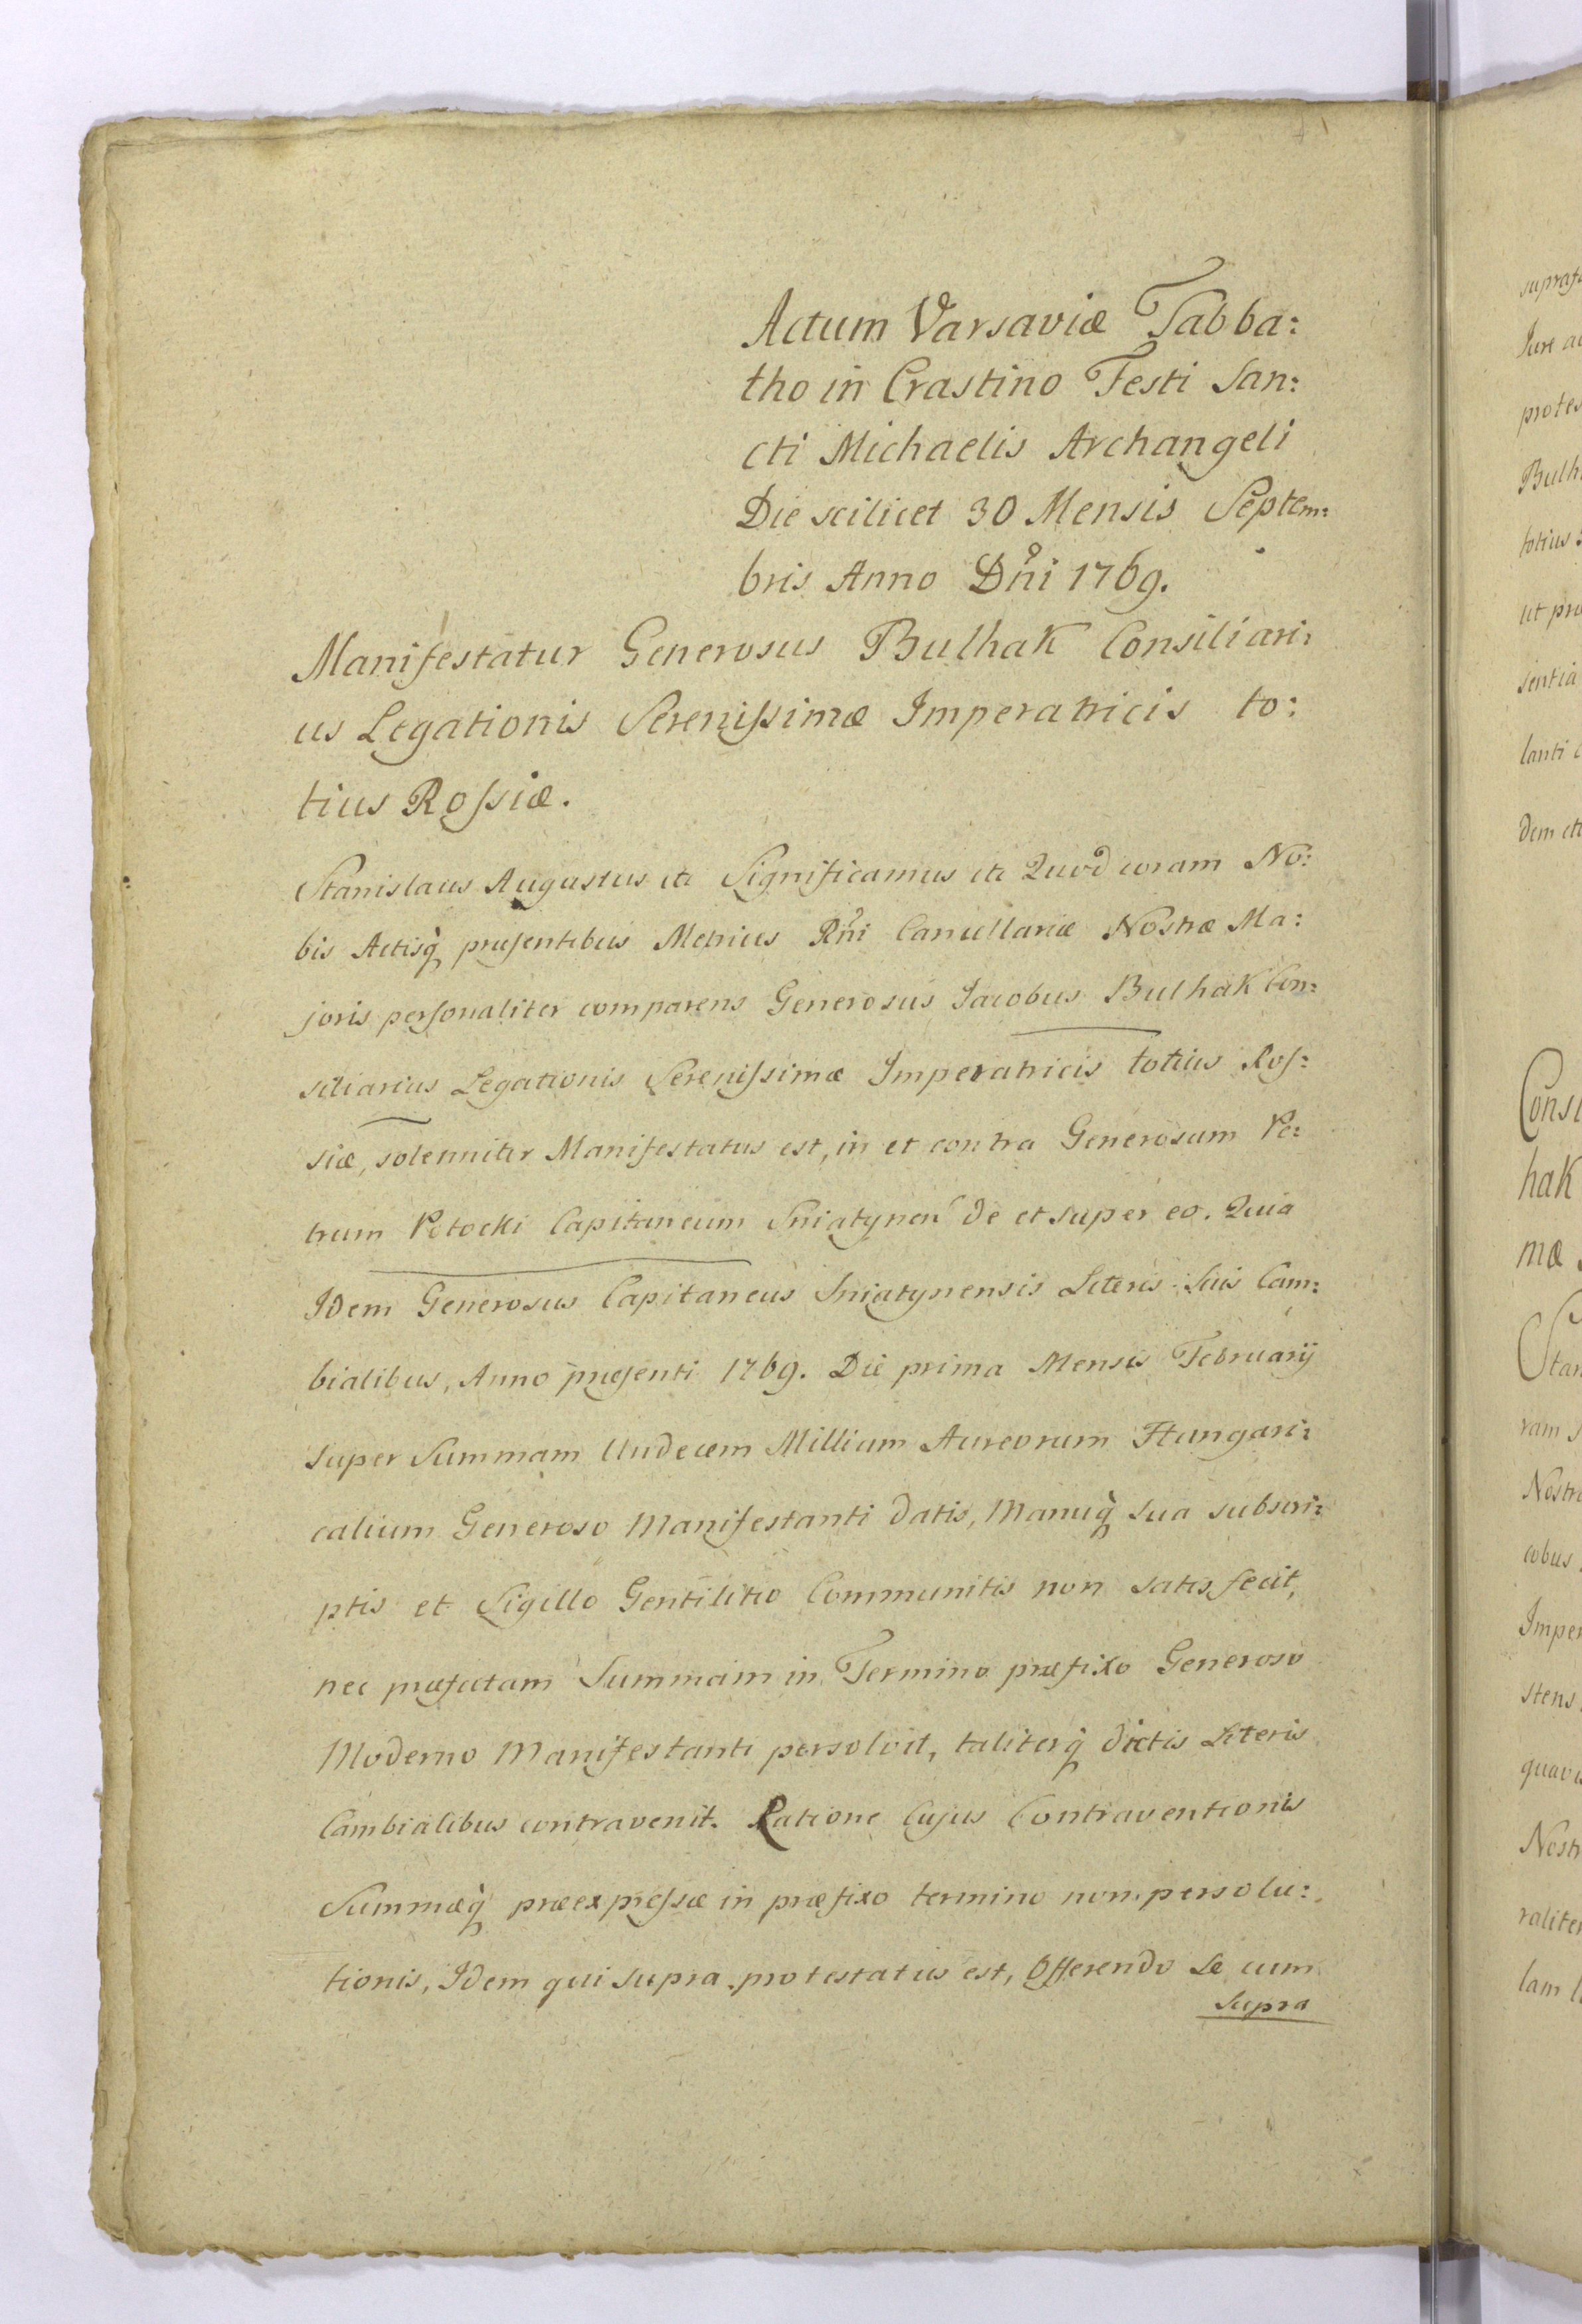 Actum Varsaviæ Sabba:
tho in Crastino Festi San:
cti Michaelis Archangeli
Die scilicet 30 Mensis Septem:
bris Anno Dñi 1769.
Manifestatur Generosus Bulhak Consiliari:
us Legationis Serenissimæ Imperatricis to:
tius Rossiæ.
Stanislaus Augustus etc Significamus etc Quod coram No:
bis Actisq̀ præsentibus Metrices Rñi Cancellariæ Nostræ Ma:
joris personaliter comparens Generosus Jacobus Bulhak Con:
siliarius Legationis Serenissimæ Imperatricis totius Ros:
siæ, solenniter Manifestatus est, in et contra Generosum Pe:
trum Potocki Capitaneum Sniatynen de et super eo. Quia
Idem Generosus Capitaneus Sniatynensis Literis Suis Cam:
bialibus, Anno præsenti 1769. Die prima Mensis Februarij
super Summam Undecem Millium Aureorum Hungari:
calium Generoso Manifestanti datis, Manuq̀ sua subscri:
ptis et Sigillo Gentilitio Communitis non satis fecit,
nec præfatam Summam in Termino præfixo Generoso
Moderno Manifestanti persolvit, taliterq̀ dictis Literis
Cambialibus contravenit. Ratione Cujus Contraventionis
Summæq̀ præexpressæ in præfixo termino non persolu:
tionis, Idem qui supra protestatus est, Offerendo se cum
supra
Jure
Bulh
totius
ut pro
sentia
lanti
dem
Consi
hak
mæ
Stan
ram
Nostr
cobus
Imper
stens
quavis
Nostr
raliter
lam